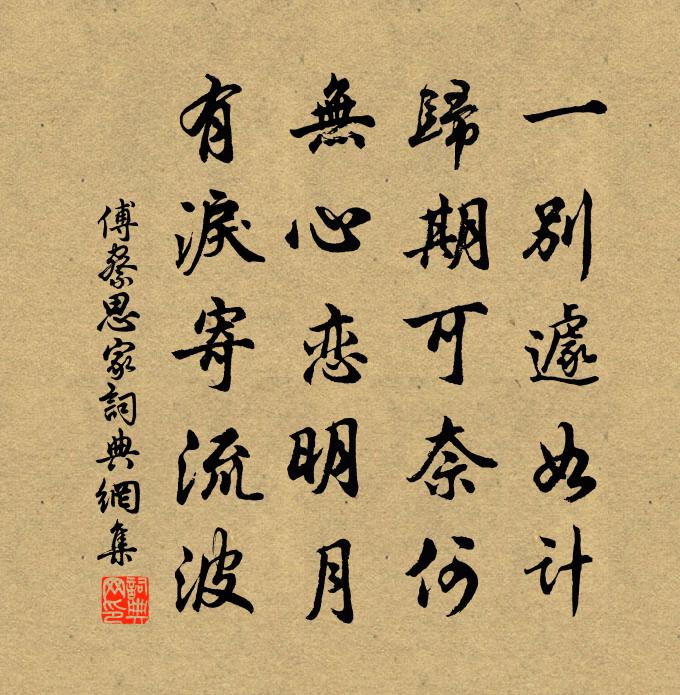 一別遽如許
歸期可奈何
無心恋明月
有淚寄流波
傅察思家詞典網集
詞典网印